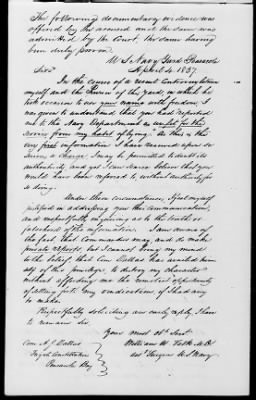 The following documentary evidence was
offered by the accused and the same was
admitted by the Court, the same having
been duly proven.
U S Navy Yard Pensacola
April 4. 1837.
Sir
In the course of a recent conversation
myself and the of this yard, in which he
took occasion to use your name with freedom, I
was given to understand that you had reported
me to the Navy Department as unfit for the
service from my habit of lying. As this is the
very first information I have received upon so
serious a charge, I may be permitted to doubt its
authenticity and yet I can scarce believe that you
would have been referred to without authority for
so doing.
Under these circumstances, I feel myself
justified in addressing you this communication,
and respectfully inquiring as to the truth or
falsehood of the information. I am aware of
the fact that Commanders may, and do make
private reports, but I cannot bring my mind
to the belief, that Com Dallas has availed him
self of this privilege, to destroy my character
without affording me the remotest opportunity
of setting forth any vindication if I had any
to make.
Respectfully soliciting an early reply, I have
to remain Sir
Your most obt Servt
Com A. J. Dallas
William W.
Frigate Constellation
Asst Surgeon U S Navy
Pensacola Bay